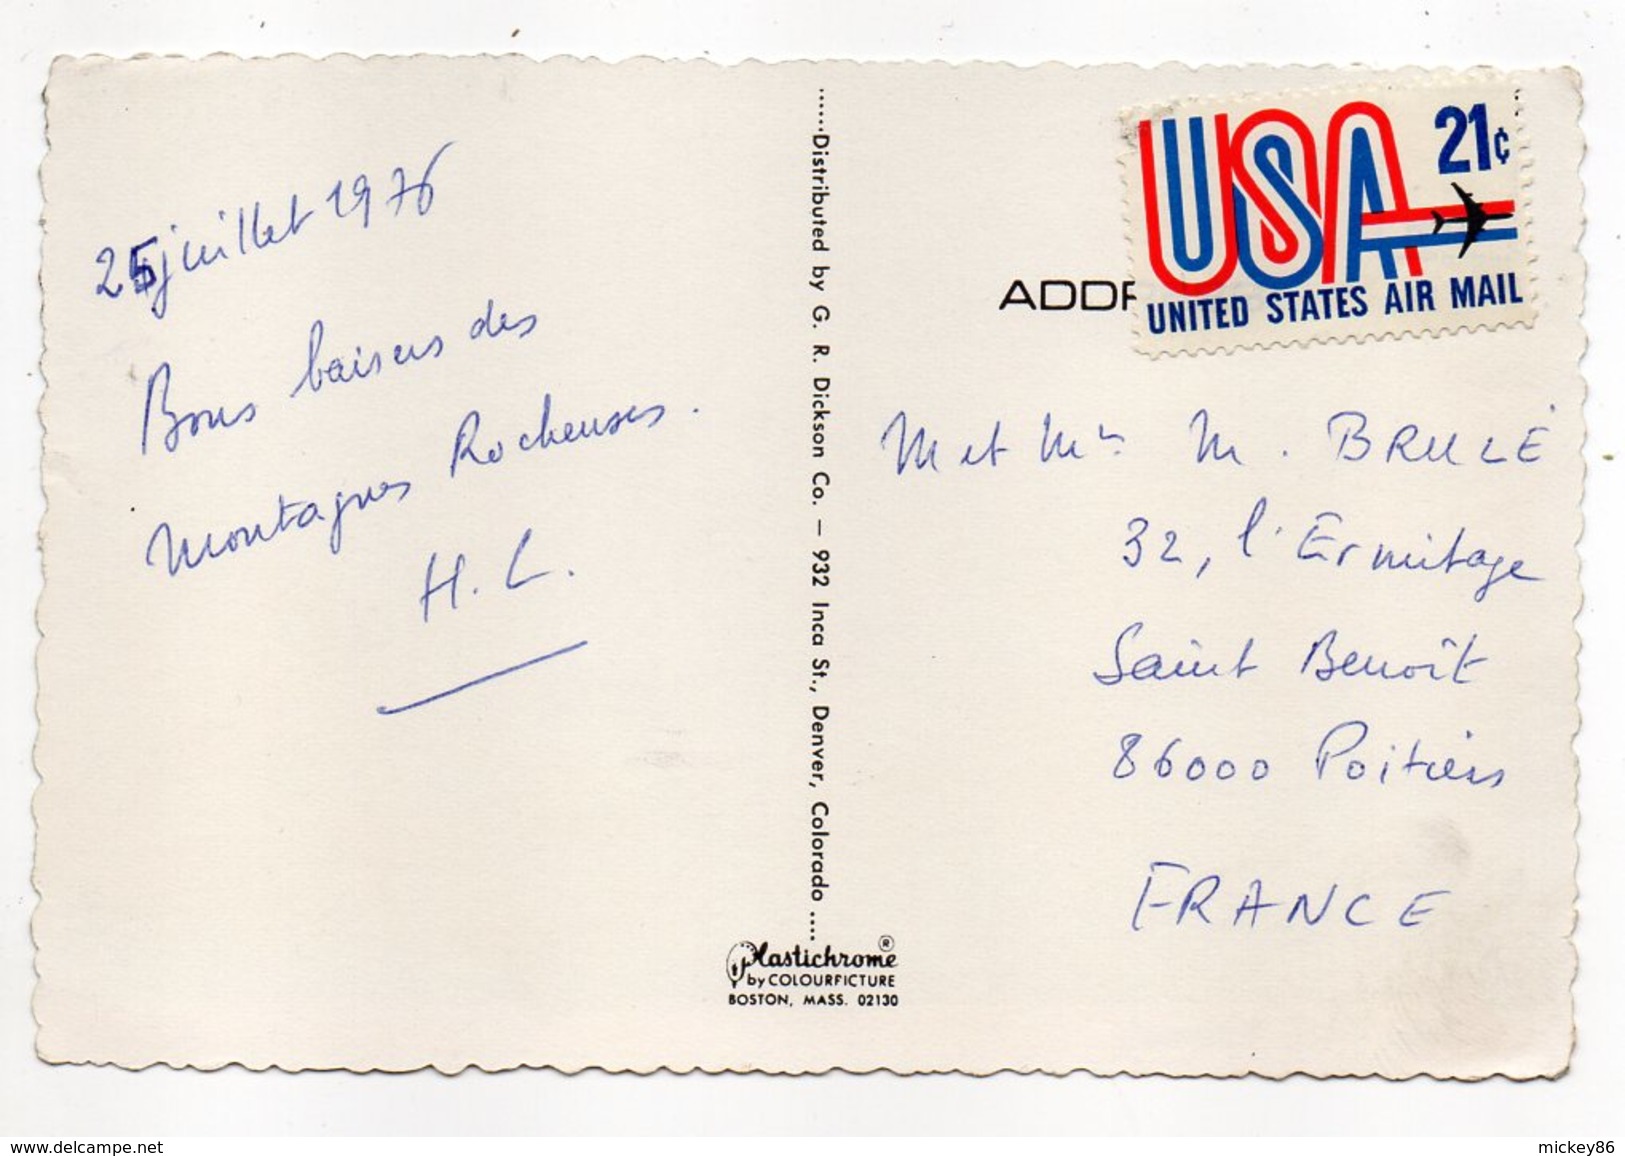 25 juillet 1976
Bons baisers des
Montagnes Rocheuses.
H. L.
......Distributed by G. R. Dickson Co. — 932 Inca St., Denver, Colorado ....
Plastichrome ®
by COLOURPICTURE
BOSTON, MASS. 02130
USA 21¢
UNITED STATES AIR MAIL
ADDR
M et Mme M. BRULÉ
32, l'Ermitage
Saint Benoît
86000 Poitiers
FRANCE
www.delcampe.net
mickey86